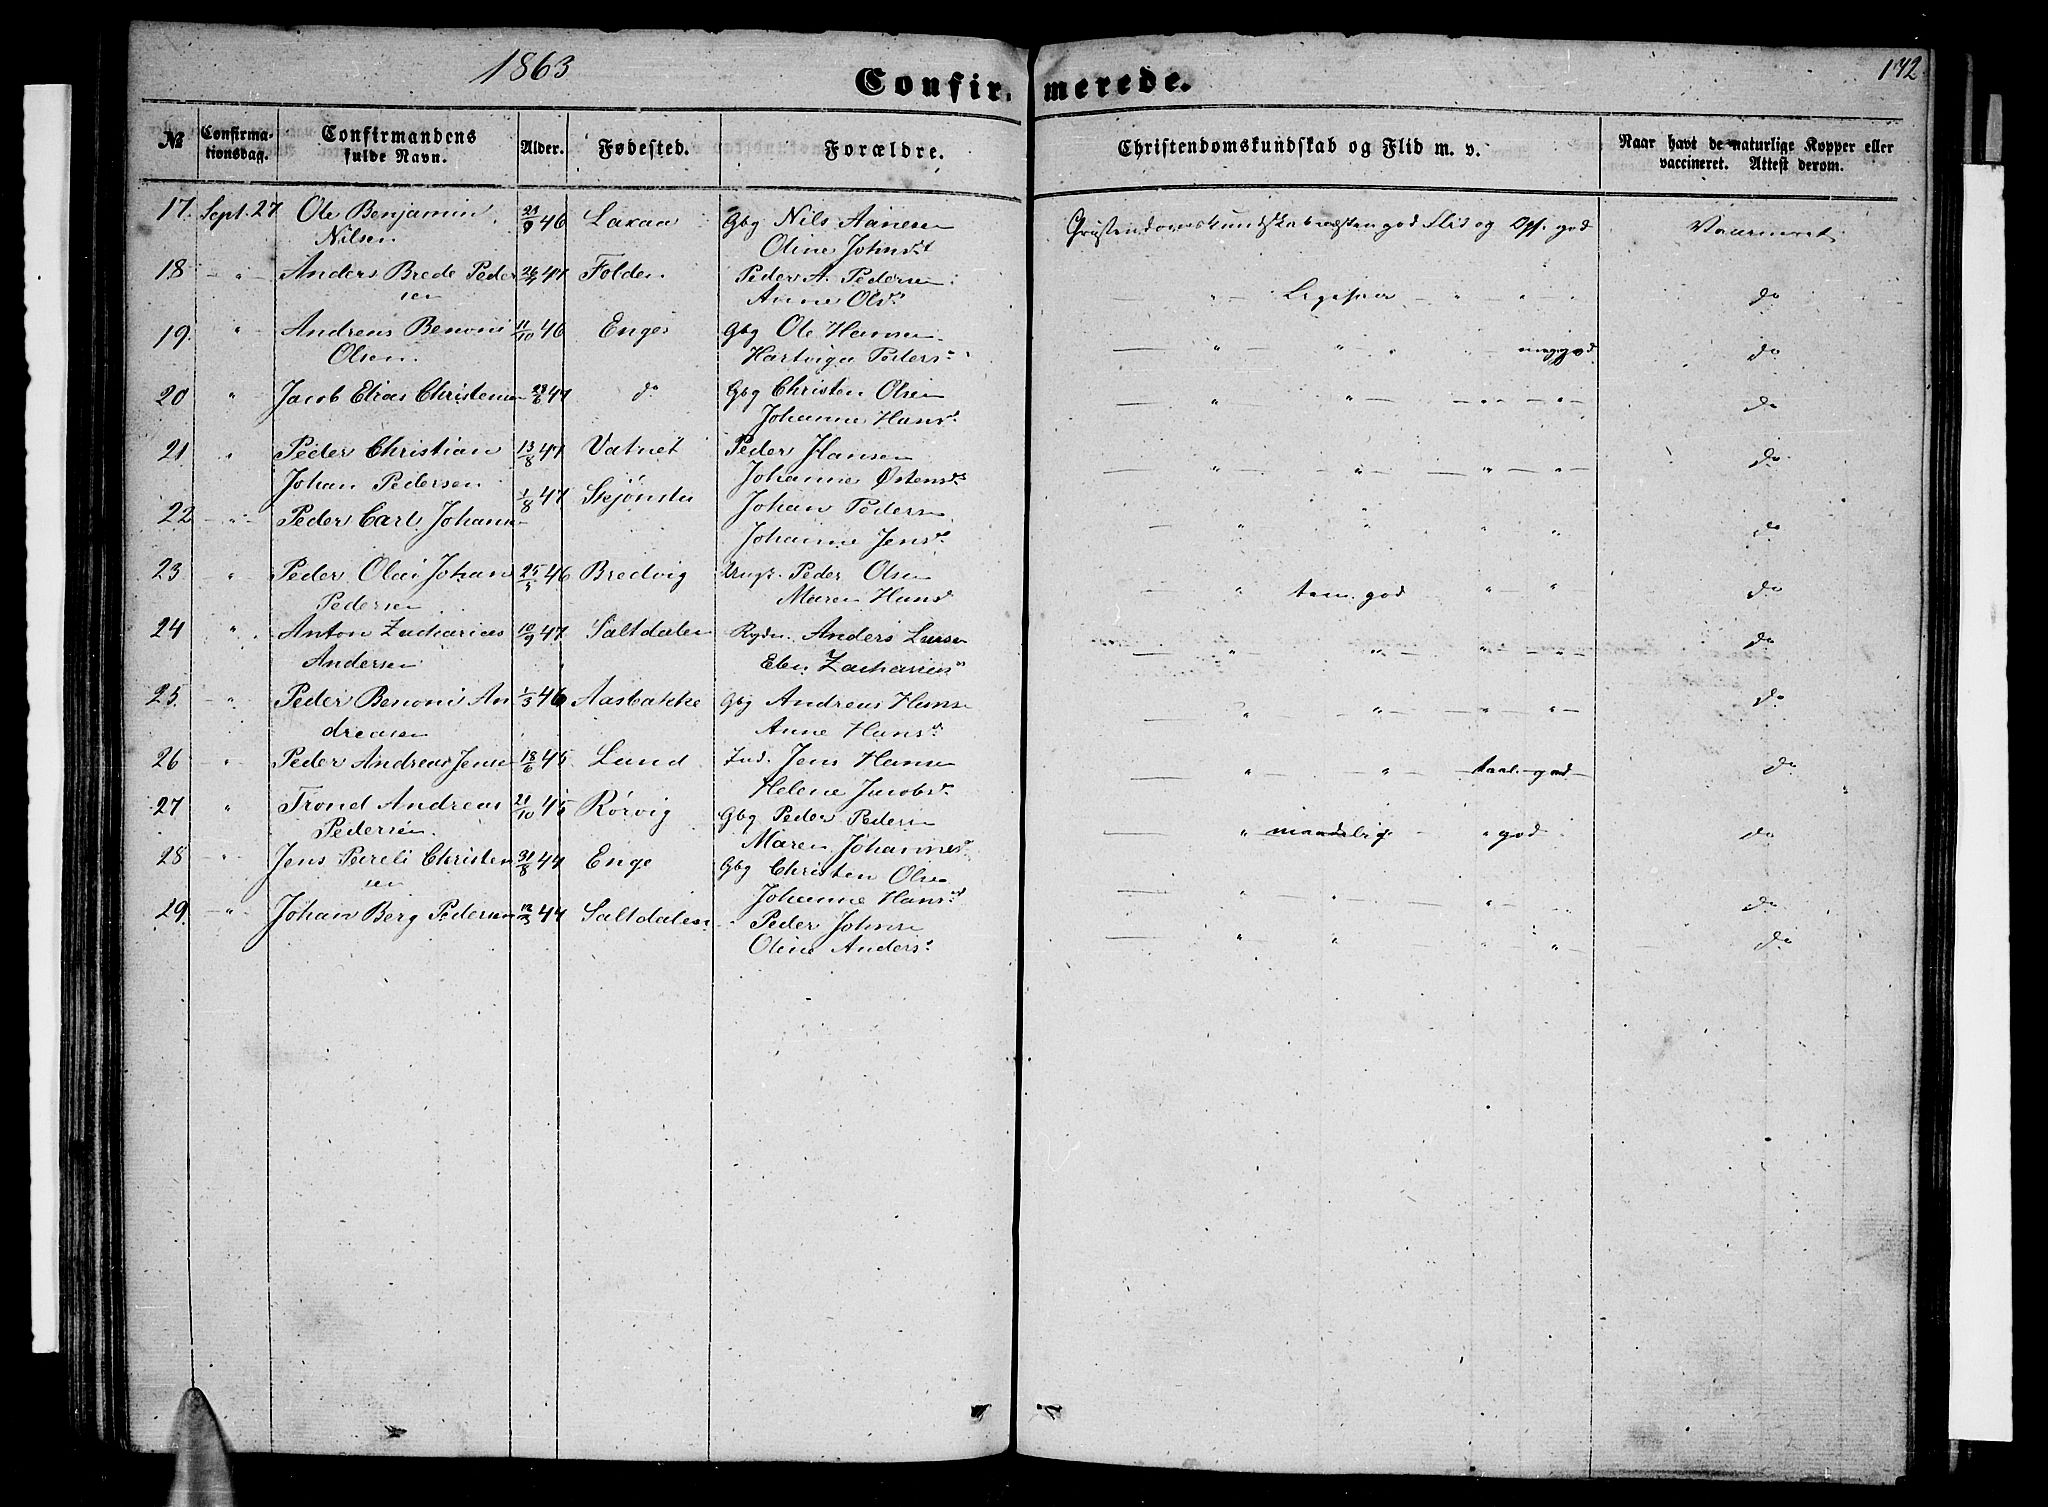 1863
Confirmerede.
142
№ Confirmationsdag. Confirmandens fulde Navn. Alder. Fødested. Forældre. Christendomskundskab og Flid m. v. Naar havt de naturlige Kopper eller vaccineret. Attest derom.
17. Sept. 27 Ole Benjamin 46 Laxaa Gbg Nils Aanesen Christendomskundskab næsten god Flid og Opf. god Vaccineret
Nilsen Oline Johnsd.
18 " Anders Brede Peder 47 Folden Peder A. Pedersen " " " do
sen Anne Olsd.
19. " Andreas Benoni 11/10 46 Enges Gbg Ole Hansen " " " meget god do
Olsen. Hartviga Peders.
20 " Jacob Elias Christensen 28/6 47 do Gbg Christen Olsen " " " " do
Johanne Hansd.
21 " Peder Christian 13/8 47 Vatnet Peder Hansen " " " " do
Johan Pedersen Johanne Østensd.
22 " Peder Carl Johansen 1/8 47 Skjønsta Johan Pedersen " " " " do
Johanne Jensd.
23 " Peder Olai Johan 46 Bredvig Peder Olsen " tem. god " " do
Pedersen Maren Hansd.
24 " Anton Zacharias 10/9 47 Saltdalen Rydn. Anders Larsen " " " " do
Andersen Zacharias
25. " Peder Benoni An 1/3 46 Aasbakke Gbg Andreas Hansen " " " " do
dreasen Anne Hansd.
26 " Peder Andreas Jensen 18/6 45 Lund Ind. Jens Hansen " " taal. god do
Helene Jacobsd.
27 " Trond Andreas 21/10 45 Rørvig Gbg Peder Pedersen " maadelig " god do
Pedersen. Maren Johannesd.
28 " Jens Pareli Christen 31/8 47 Enge Gbg Christen Olsen " " " " do
sen Johanne Hansd.
29. " Johan Berg Pedersen 47 Saltdalen Peder Johnsen " " " " do
Oline Andersd.